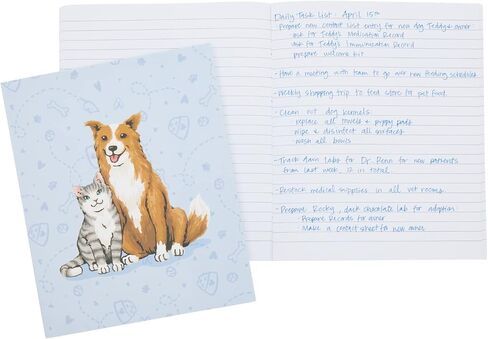 Daily Task List: April 15th
- Prepare new contact list entry for new dog Teddy & owner
ask for Teddy's Medication Record
ask for Teddy's Immunization Record
prepare welcome kit
- Have a meeting with team to go over new feeding schedules
- Weekly shopping trip to feed store for pet food.
- Clean out dog kennels
replace all towels & puppy pads
wipe & disinfect all surfaces
wash all bowls
- Track down labs for Dr. Penn for new patients
from last week 12 in total.
- Restock medical supplies in all vet rooms.
- Prepare Rocky, dark chocolate lab for adoption
- Prepare Records for owner
- Make a contact sheet for new owner